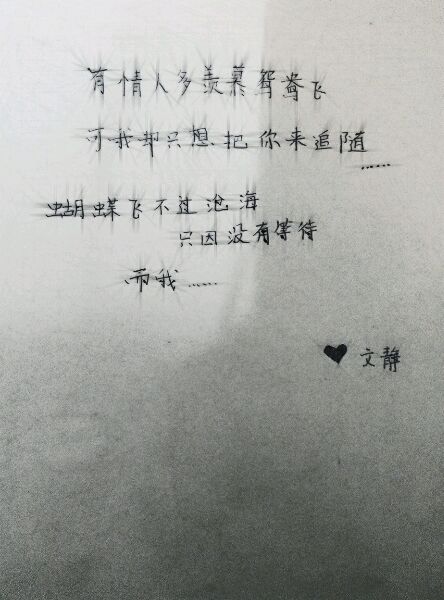 有情人多羡慕鸳鸯飞
可我却只想把你来追随
......
蝴蝶飞不过沧海
只因没有等待
而我......
♥ 文静